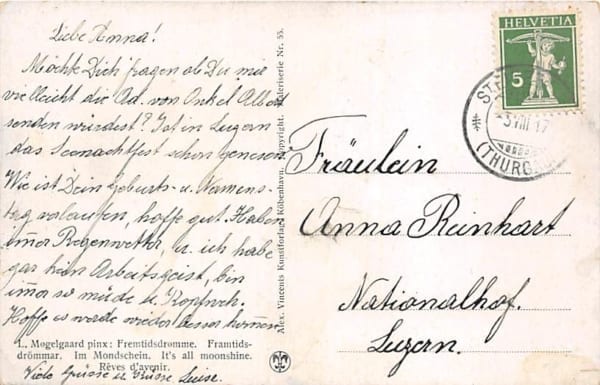 Liebe Anna!
Möchte Dich fragen ob Du mir
vielleicht die Ad. von Onkel Albert
senden würdest? Ist in Luzern
das Seenachtfest schon gewesen?
Wie ist Dein Geburts- u. Namens-
tag verlaufen, hoffe gut. Haben
immer Regenwetter, u. ich habe
gar kein Arbeitsgeist, bin
immer so müde u. Kopfweh.
Hoffe es werde wieder besser kommen.
L. Mogelgaard pinx: Fremtidsdrømme. Framtids-
drömmar. Im Mondschein. It's all moonshine.
Rêves d'avenir.
Viele Grüsse u. Küsse Luise.
Alex. Vincents Kunstforlag, København. Copyright. Malerserie Nr. 55.
HELVETIA
5
ST
3 VIII 17
(THURG
Fräulein
Anna Reinhart
Nationalhof.
Luzern.